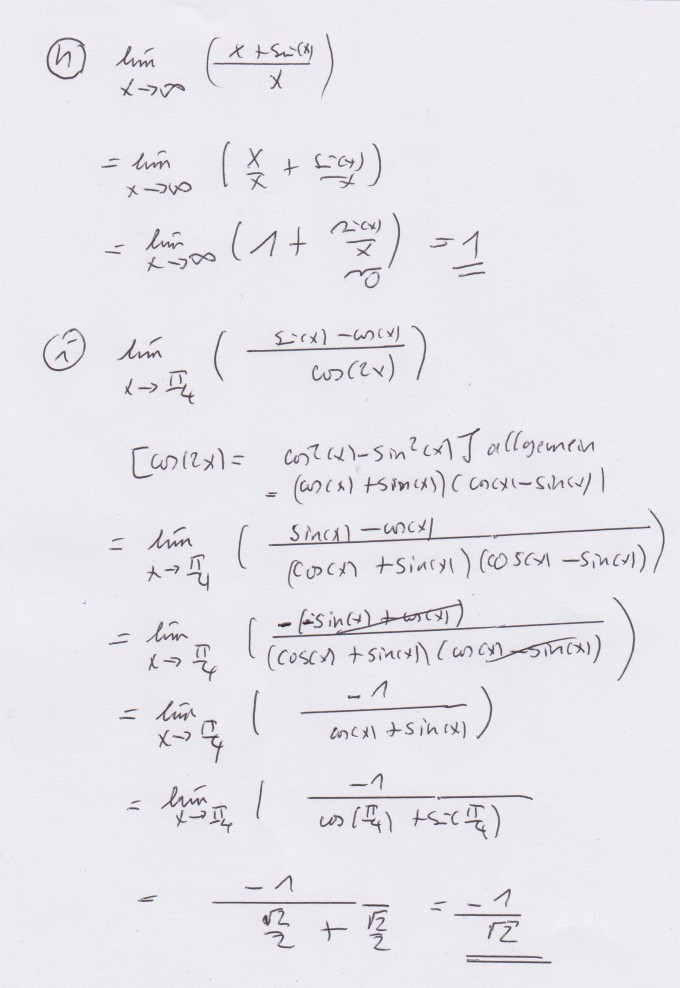 h) lim x→∞ ( (x + sin(x)) / x )
= lim x→∞ ( x/x + sin(x)/x )
= lim x→∞ ( 1 + sin(x)/x ) = 1
→0
i) lim x→π/4 ( (sin(x) - cos(x)) / cos(2x) )
[cos(2x) = cos²(x) - sin²(x)] allgemein
= (cos(x) + sin(x)) (cos(x) - sin(x))
= lim x→π/4 ( (sin(x) - cos(x)) / ((cos(x) + sin(x)) (cos(x) - sin(x))) )
= lim x→π/4 ( -(-sin(x) + cos(x)) / ((cos(x) + sin(x)) (cos(x) - sin(x))) )
= lim x→π/4 ( -1 / (cos(x) + sin(x)) )
= lim x→π/4 ( -1 / (cos(π/4) + sin(π/4))
= -1 / (√2/2 + √2/2) = -1/√2